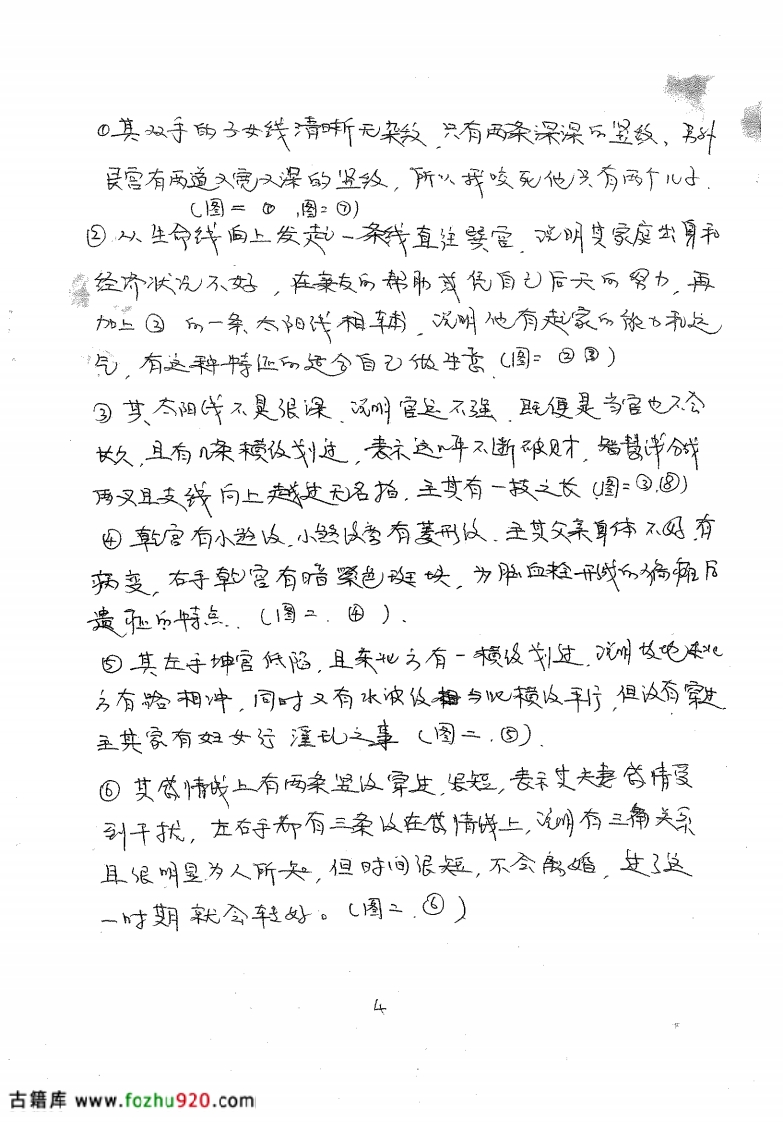 ①其双手的子女线清晰无杂纹,只有两条深深的竖纹、另外
艮宫有两道又宽又深的竖纹,所以我咬死他只有两个儿子.
(图二 ① ,图二⑦)
② 从生命线向上发起一条线直往巽宫,说明其家庭出身和
经济状况不好,在亲友的帮助或凭自己后天的努力,再
加上③的一条太阳线相辅,说明他有起家的能力和运
气,有这种特征的适合自己做生意(图二②③)
③ 其太阳线不是很深,说明官运不强,既便是当官也不会
长久,且有几条横纹划过,表示这几年不断破财,智慧线分成
两叉且支线向上越过无名指,主其有一技之长(图二③,⑧)
④ 乾宫有小煞纹.小煞纹旁有菱形纹.主其父亲身体不好有
病变,右手乾宫有暗紫色斑块,为脑血栓形成的偏瘫后
遗症的特点.(图二.④).
⑤ 其左手坤宫低陷,且东北方有一横纹划过,说明坟地东北
方有路相冲,同时又有水波纹与此横纹平行,但没有穿过
主其家有妇女行淫乱之事(图二.⑤).
⑥ 其感情线上有两条竖纹穿过,很短,表示丈夫妻感情受
到干扰,左右手都有三条纹在感情线上,说明有三角关系
且很明显为人所知,但时间很短,不会离婚,过了这
一时期就会转好。(图二.⑥)
4
古籍库 www.fozhu920.com